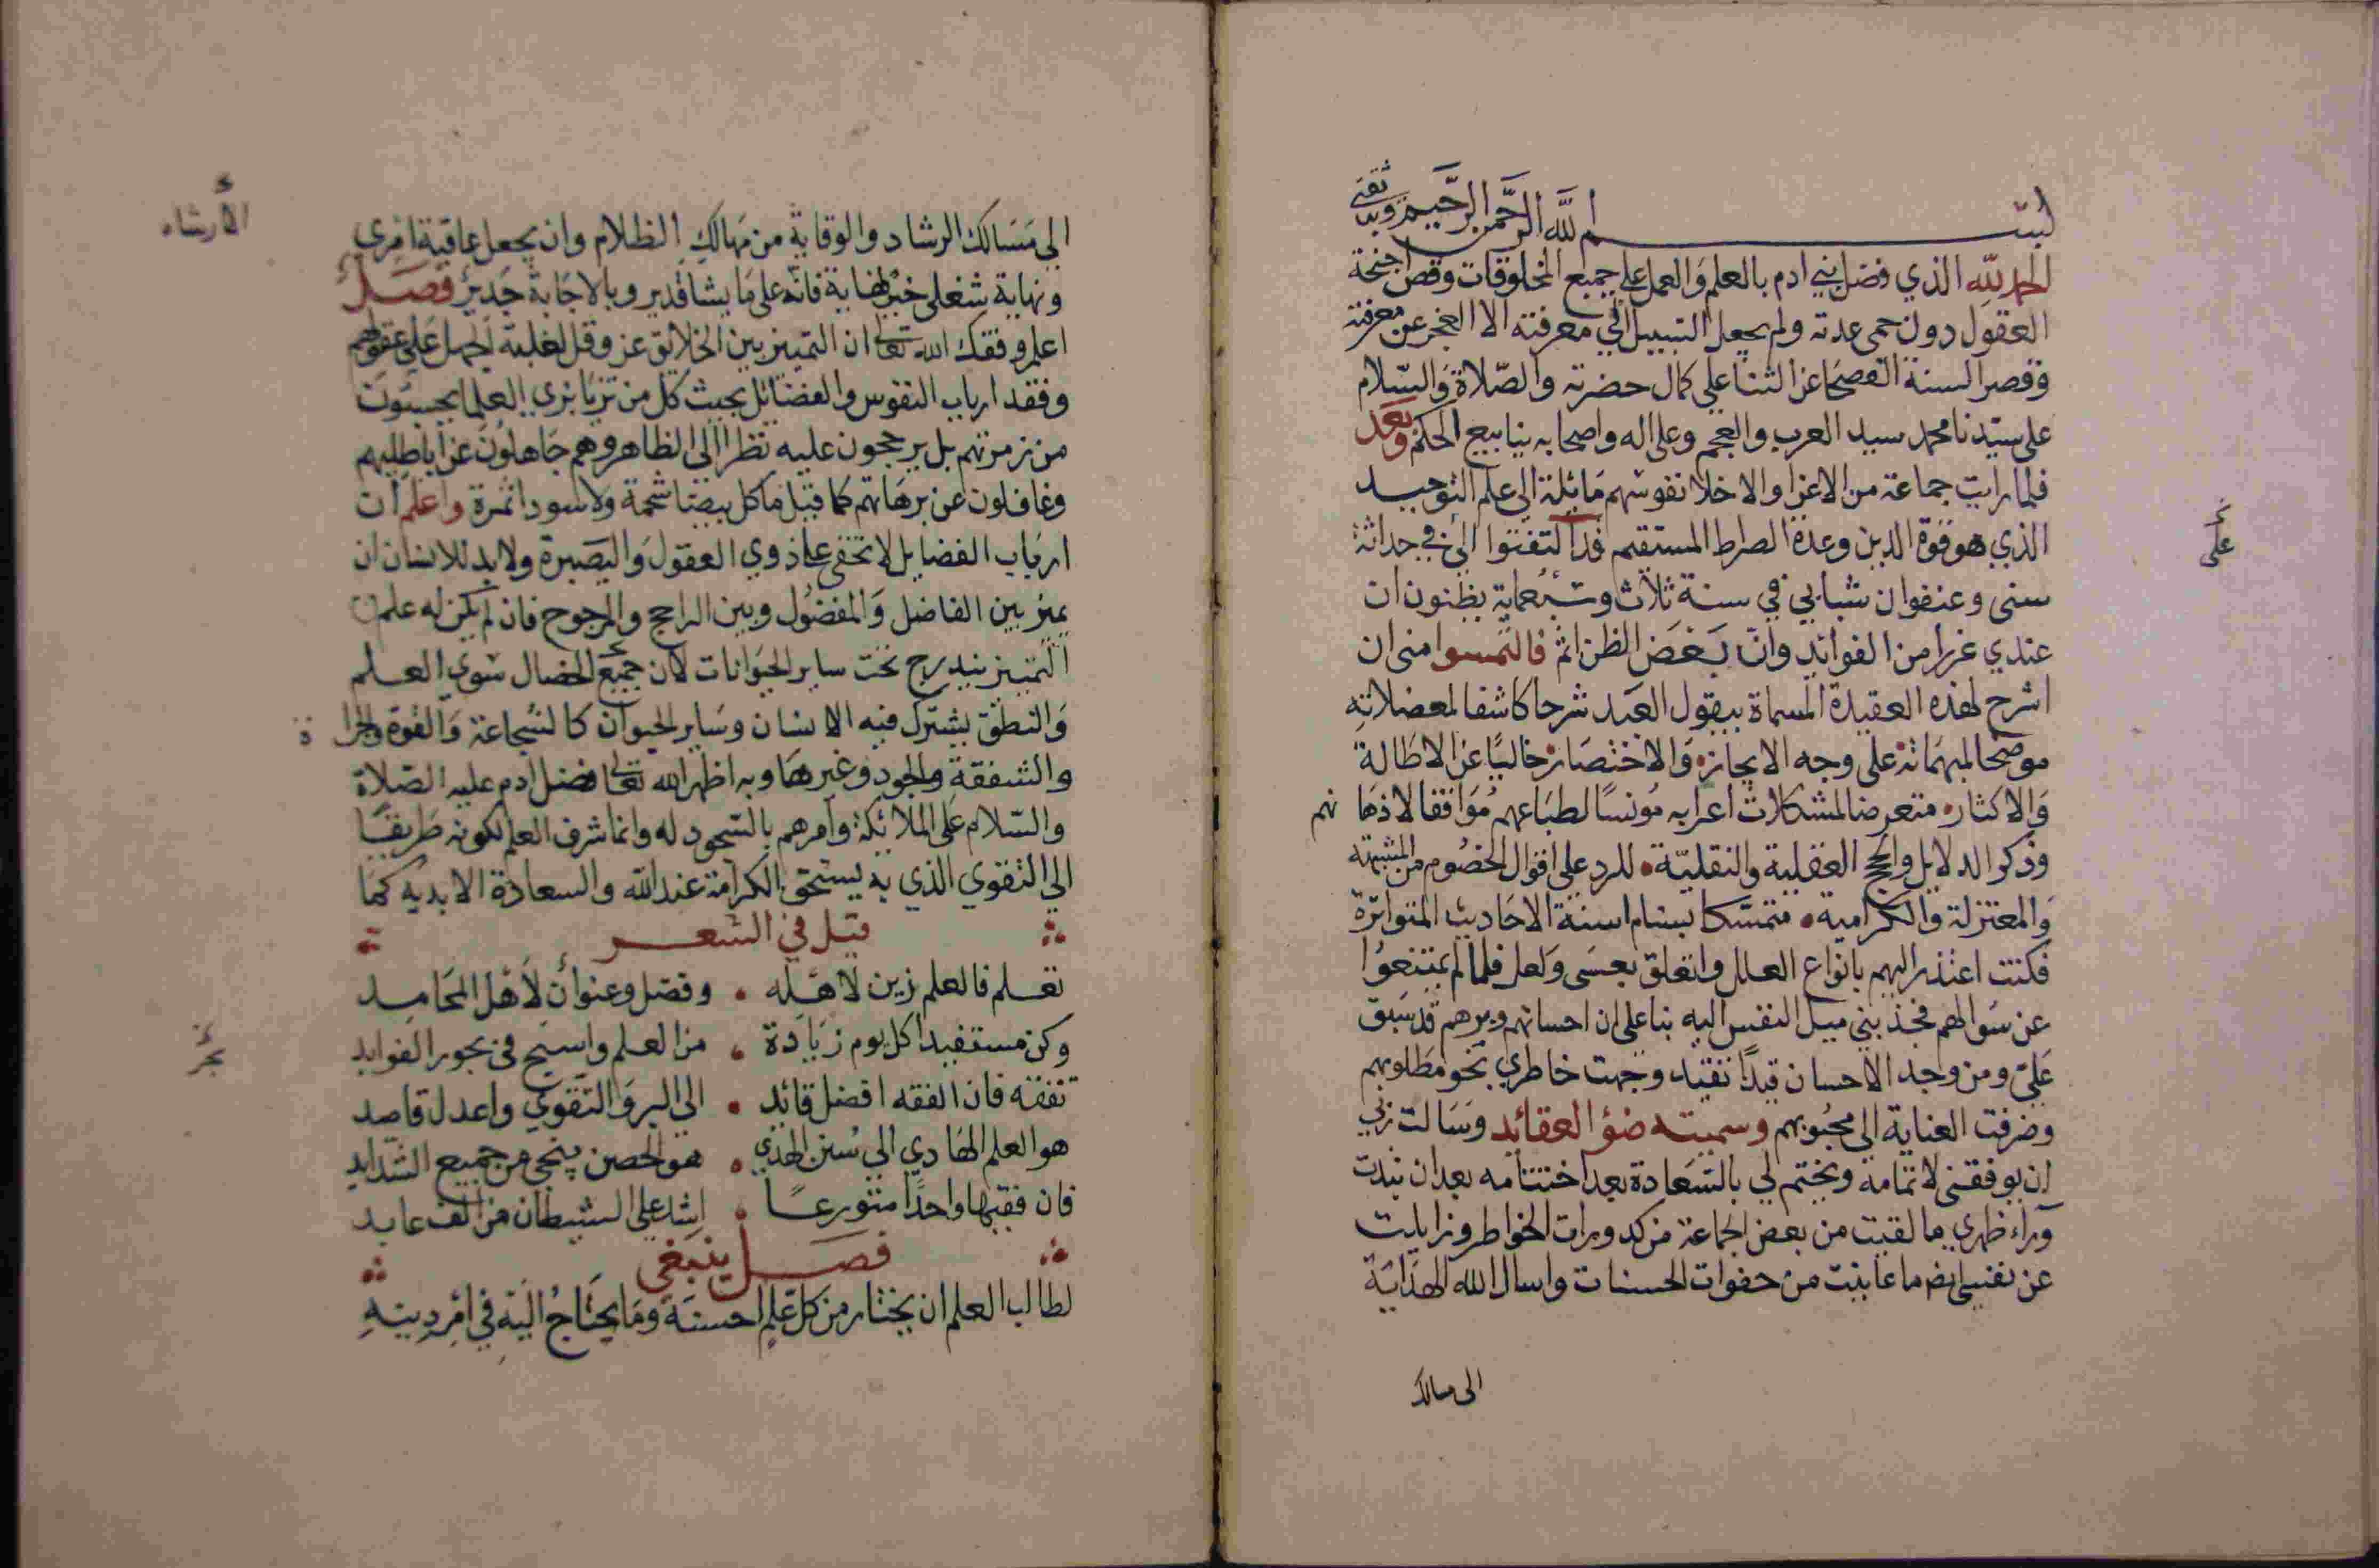 بسم الله الرحمن الرحيم وبه ثقتي
الحمد لله الذي فضل بني ادم بالعلم والعمل على جميع المخلوقات وقص اجنحة
العقول دون حمى عدته ولم يجعل السبيل الى معرفته الا العجز عن معرفته
وقصر السنة الفصحا عن الثنا على كمال حضرته والصلاة والسلام
على سيدنا محمد سيد العرب والعجم وعلى اله واصحابه ينابيع الحكم وبعد
فلما رايت جماعة من الاعزا والاخلا نفوسهم مائلة الى علم التوحيد
الذي هو قوة الدين وعدة الصراط المستقيم قد التفتوا الي في حداثة
سنى وعنفوان شبابي في سنة ثلاث وتسعماية يظنون ان
عندي غررا من الفوائد وان بعض الظن اثم فالتمسوا منى ان
اشرح لهذه العقيدة المسماة بيقول العبد شرحا كاشفا لمعضلاته
موضحا لمبهماته على وجه الايجاز والاختصار خاليا عن الاطالة
والاكثار متعرضا لمشكلات اعرابه مونسا لطباعهم موافقا لاذهانهم
وذكر الدلايل والحجج العقلية والنقلية للرد على اقوال الخصوم من المشبهة
والمعتزلة والكرامية متمسكا بسنام اسنة الاحاديث المتواترة
فكنت اعتذر اليهم بانواع العلل واتعلق بعسى ولعل فلما لم يمتنعوا
عن سوالهم فجذبني ميل النفس اليه بنا على ان احسانهم وبرهم قد سبق
علي ومن وجد الاحسان قيدا تقيد وجهت خاطري نحو مطلوبهم
وصرفت العناية الى محبوبهم وسميته ضؤ العقائد وسالت ربي
ان يوفقنى لاتمامه ويختم لي بالسعادة بعد اختتامه بعد ان نبذت
وراء ظهري ما لقيت من بعض الجماعة من كدورات الخواطر وزايلت
عن نفسي ما عاينت من حفوات الحسنات واسال الله الهداية
الى مسالك
على
الى مسالك الرشاد والوقاية من مهالك الظلام وان يجعل عاقبة امري
ونهاية شغلى خير نهاية فانه على ما يشا قدير وبالاجابة جدير فصل
اعلم وفقك الله تعالى ان التمييز بين الخلائق عز وقل لغلبة الجهل على عقولهم
وفقد ارباب النفوس والفضائل بحيث كل من تزيا بزي العلما يحسبون
من زمرتهم بل يرجحون عليه نظرا الى الظاهر وهم جاهلون عن اباطيلهم
وغافلون عن برهانهم كما قيل ما كل بيضا شحمة ولا سودا تمرة واعلم ان
ارباب الفضايل لا تخفى على ذوي العقول والبصيرة ولا بد للانسان ان
يميز بين الفاضل والمفضول وبين الراجح والمرجوح فان لم يكن له علم
التمييز يندرج تحت ساير الحيوانات لان جميع الخصال سوى العلم
والنطق يشترك فيه الانسان وساير الحيوان كالشجاعة والقوة والجراة
والشفقة والجود وغيرها وبه اظهر الله تعالى فضل ادم عليه الصلاة
والسلام على الملائكة وامرهم بالسجود له وانما شرف العلم لكونه طريقا
الى التقوي الذي به يستحق الكرامة عند الله والسعادة الابدية كما
قيل في الشعر
تعلم فالعلم زين لاهله • وفضل وعنوان لاهل المحامد
وكن مستفيدا كل يوم زيادة • من العلم واسبح في بحور الفوايد
تفقه فان الفقه افضل قائد • الى البر والتقوي واعدل قاصد
هو العلم الهادي الى سنن الهدي • هو الحصن ينجي من جميع الشدايد
فان فقيها واحدا متورعا • اشد على الشيطان من الف عابد
فصل ينبغي
لطالب العلم ان يختار من كل علم احسنه وما يحتاج اليه في امر دينه
الارشاد
بحر